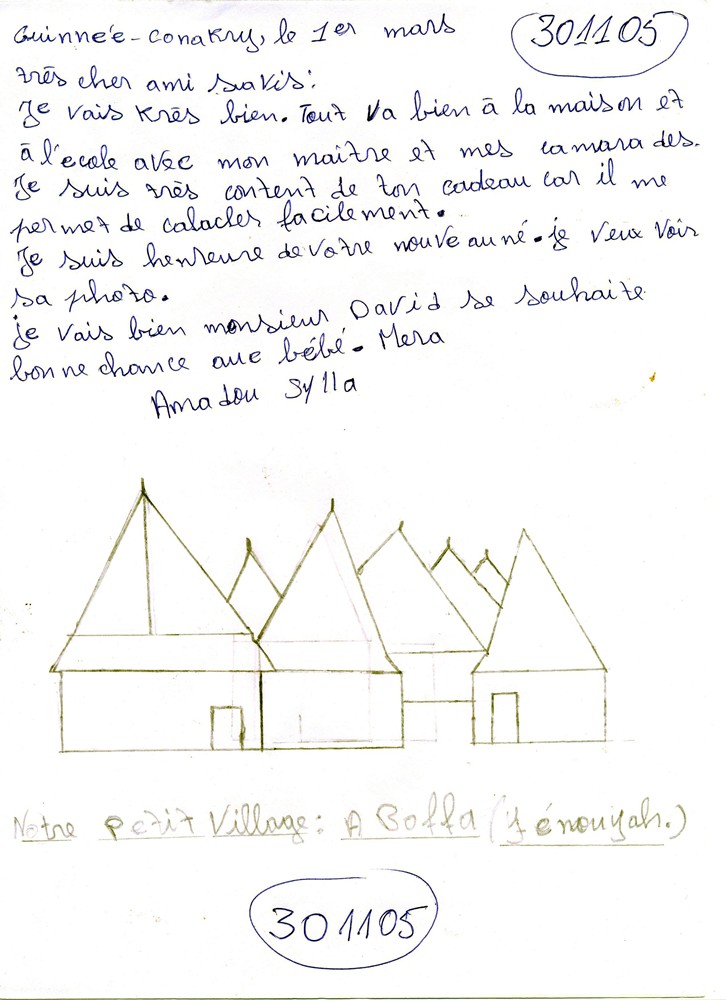 Guinnée-Conakry, le 1er mars
301105
très cher ami Savis:
Je vais très bien. Tout va bien à la maison et
à l'ecole avec mon maître et mes camarades.
Je suis très content de ton cadeau car il me
permet de calacler facilement.
Je suis heureure de votre nouveau né. je veux voir
sa photo.
je vais bien monsieur David se souhaite
bonne chance aue bébé. Mera
Amadou Sylla
Notre Petit Village: A Boffa (
301105